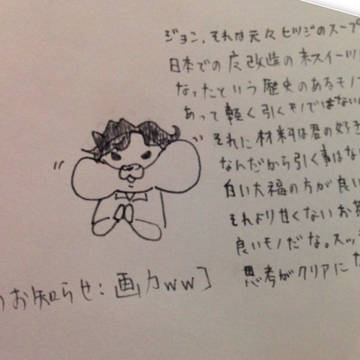 ジョン、それは元々ヒツジのスープ
日本での魔改造のネスイーツ
なったという歴史のあるモノ
あって軽く引くモノではない
それに材料は君の好
なんだから引く事はな
白い大福の方が良い
それより甘くないお
良いモノだな。スッ
思考がクリアに
のお知らせ:画力ww]